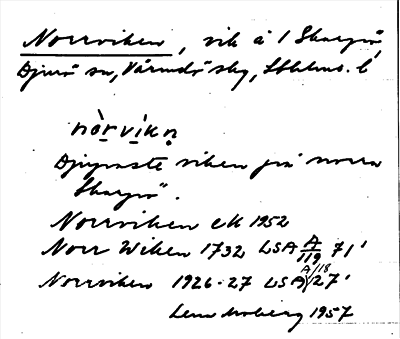 Norrviken, vik å 1 Skarpö,
Djurö sn, Värmdö skg, Sthlms. l
nòrvìkn
Djupaste viken på norra
Skarpö".
Norrviken ek 1952
Norr Wiken 1732 LSA A/119 71'
Norrviken 1926-27 LSA A/18 27'
Moberg 1957